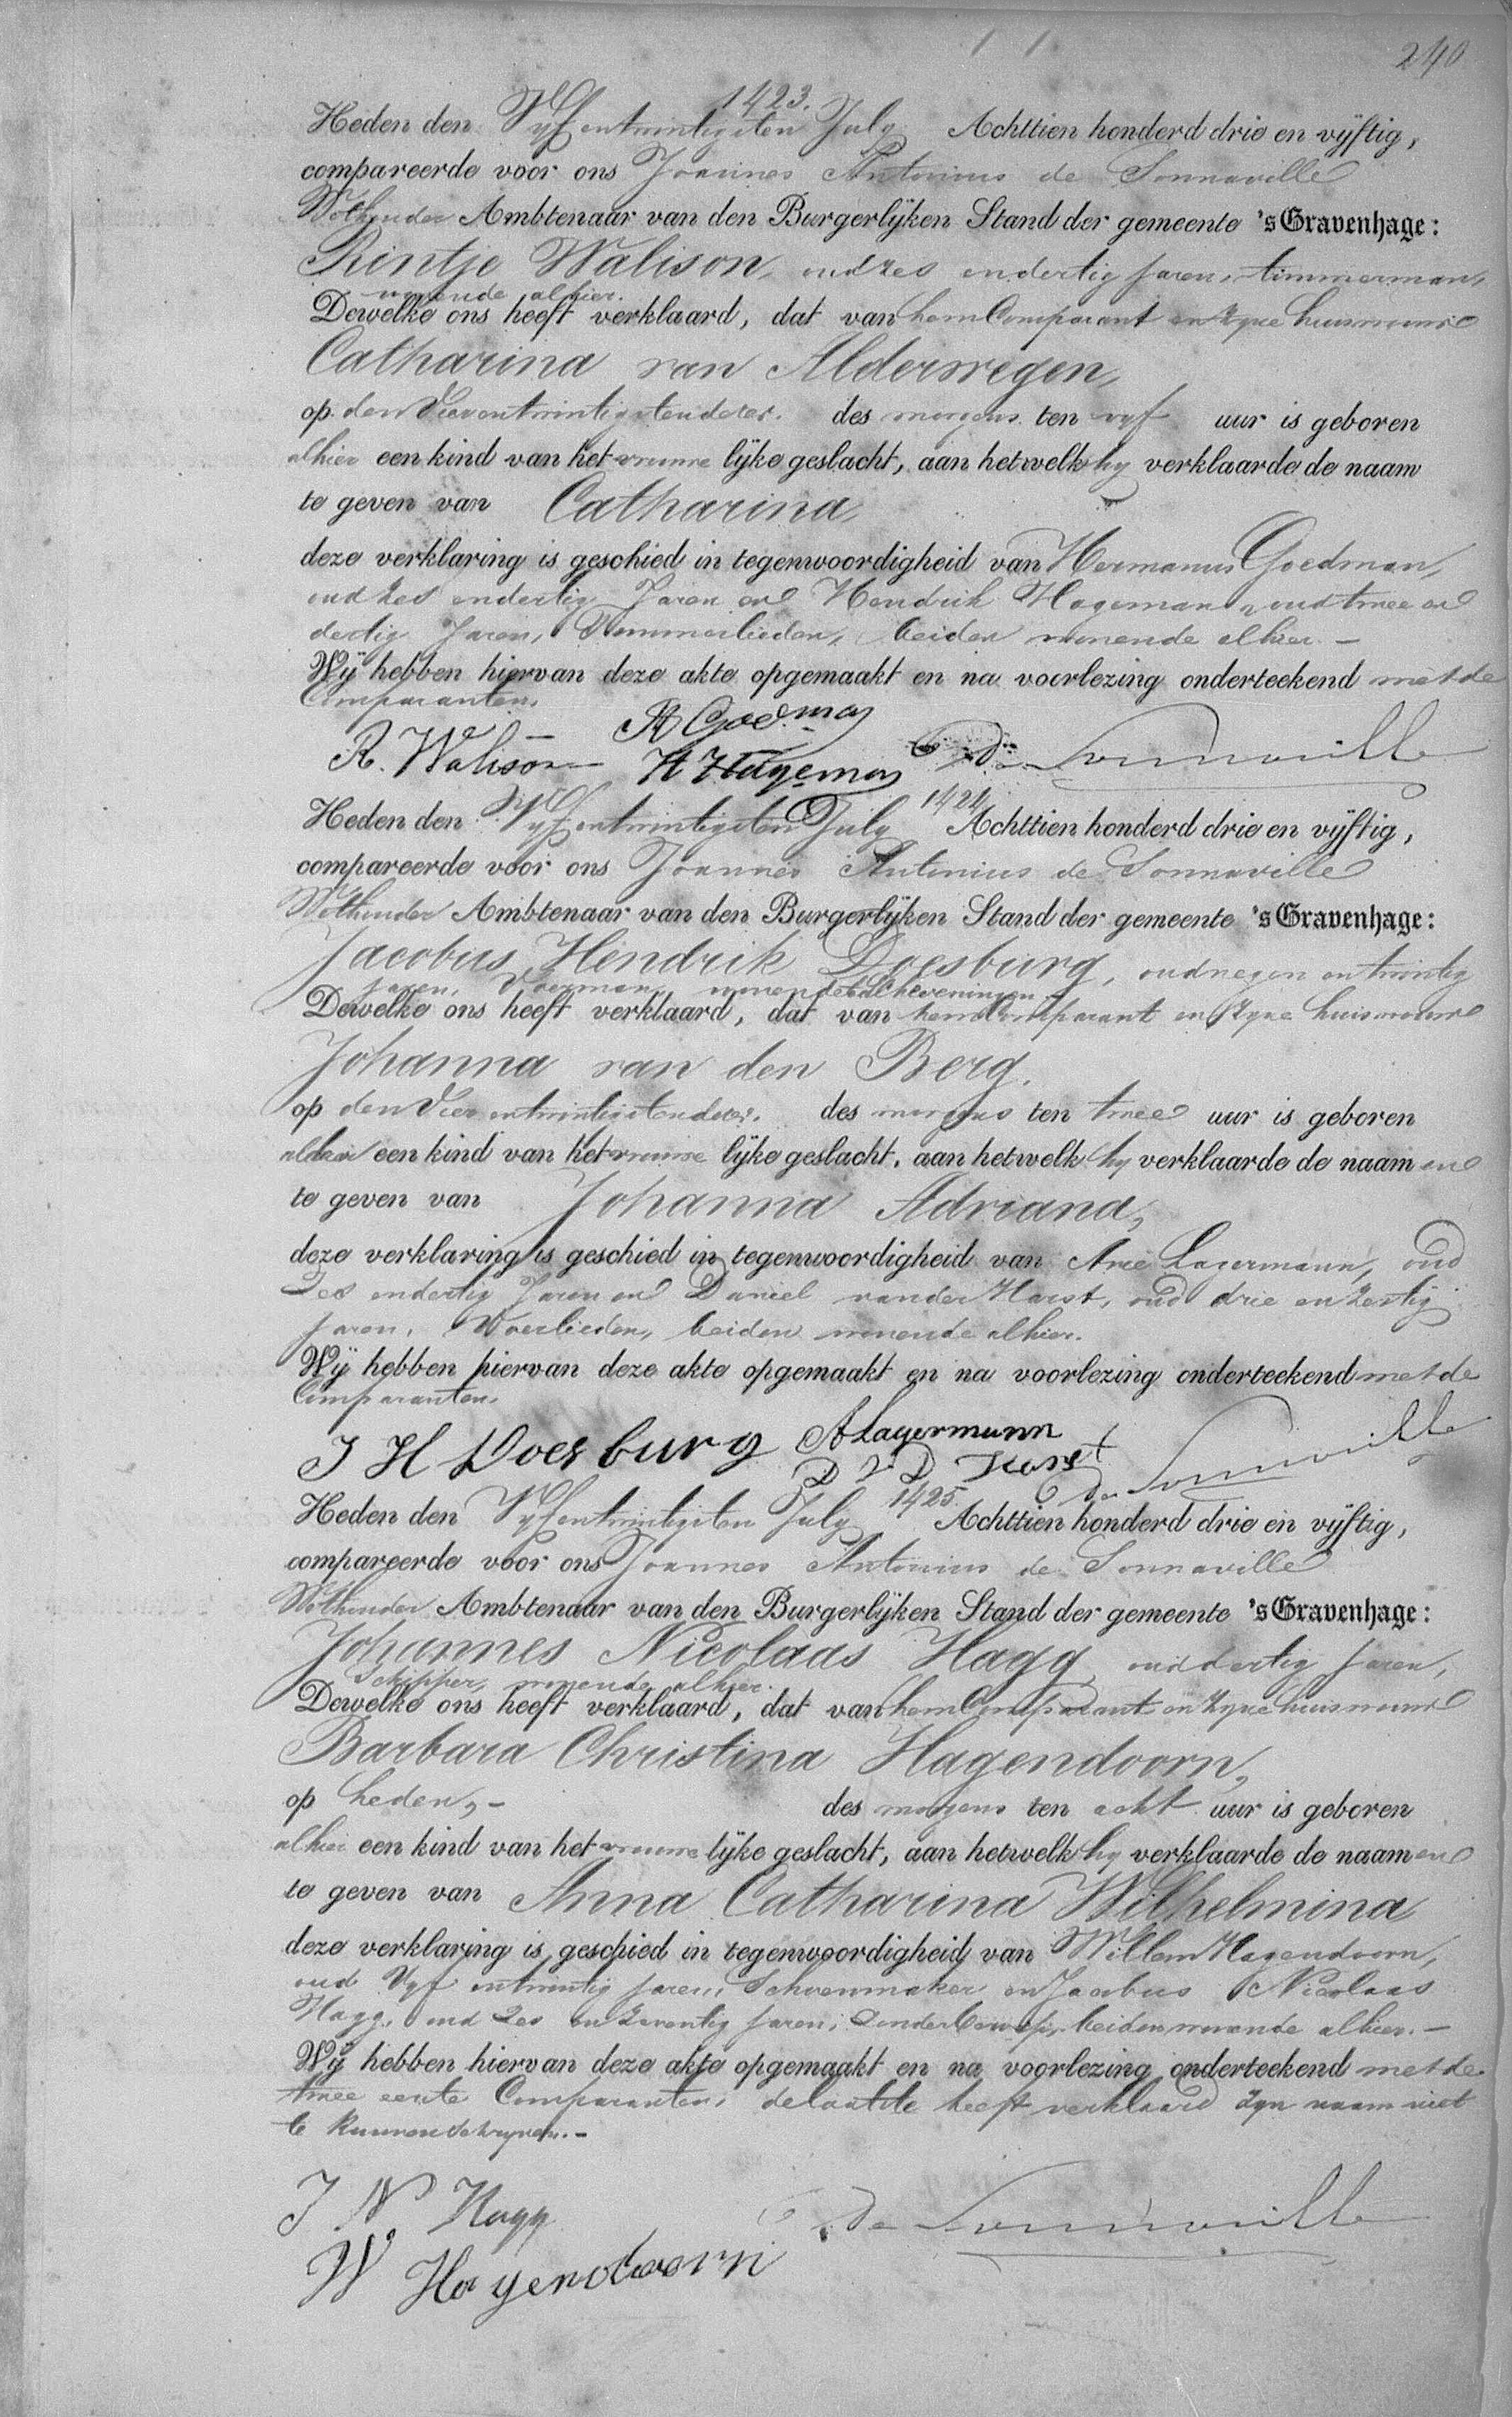 240
1423.
Heden den Vyf entwintigsten July Achttien honderd drie en vijftig,
compareerde voor ons Joannes Antonius de Sonnaville
Wethouder Ambtenaar van den Burgerlijken Stand der gemeente 's Gravenhage:
Rintje Walison, oud zes en dertig jaren, timmerman,
wonende alhier.
Dewelke ons heeft verklaard, dat van hem Comparant en zyne huisvrouw
Catharina van Alderwegen,
op den Vier entwintigsten dezer. des morgens ten vyf uur is geboren
alhier een kind van het vrouwe lijke geslacht, aan hetwelk hy verklaarde de naam
te geven van Catharina,
deze verklaring is geschied in tegenwoordigheid van Hermanus Goedman,
oud zes en dertig Jaren en Hendrik Hageman, oud twee en
dertig Jaren, Timmerlieden, beiden wonende alhier. -
Wij hebben hiervan deze akte opgemaakt en na voorlezing onderteekend met de
Comparanten.
R. Walison H Goedman
H Hageman de Sonnaville
1424
Heden den Vyf entwintigsten July Achttien honderd drie en vijftig,
compareerde voor ons Joannes Antonius de Sonnaville
Wethouder Ambtenaar van den Burgerlijken Stand der gemeente 's Gravenhage:
Jacobus Hendrik Doesburg, oud negen en twintig
jaren, Voerman, wonende te Scheveningen
Dewelke ons heeft verklaard, dat van hem Comparant en zyne huisvrouw
Johanna van den Berg.
op den Vier entwintigsten dezer. des morgens ten twee uur is geboren
alhier een kind van het vrouwe lijke geslacht, aan hetwelk hy verklaarde de naam en
te geven van Johanna Adriana,
deze verklaring is geschied in tegenwoordigheid van Arie Lagermann, oud
Zes en dertig Jaren en Daniel van der Harst, oud drie en zestig
jaren, Voerlieden, beiden wonende alhier.
Wij hebben hiervan deze akte opgemaakt en na voorlezing onderteekend met de
Comparanten.
J H Doesburg A Lagermann
D V D Harst de Sonnaville
1425
Heden den Vyf entwintigsten July Achttien honderd drie en vijftig,
compareerde voor ons Joannes Antonius de Sonnaville
Wethouder Ambtenaar van den Burgerlijken Stand der gemeente 's Gravenhage:
Johannes Nicolaas Hagg, oud dertig jaren,
Schipper, wonende alhier.
Dewelke ons heeft verklaard, dat van hem Comparant en zyne huisvrouw
Barbara Christina Hagendoorn,
op heden, - des morgens ten acht uur is geboren
alhier een kind van het vrouwe lijke geslacht, aan hetwelk hy verklaarde de naam en
te geven van Anna Catharina Wilhelmina
deze verklaring is geschied in tegenwoordigheid van Willem Hagendoorn,
oud Vyf entwintig jaren, Schoenmaker en Jacobus Nicolaas
Hagg, oud Zes en Zeventig jaren, Zonder beroep, beiden wonende alhier. -
Wij hebben hiervan deze akte opgemaakt en na voorlezing onderteekend met de
twee eerste Comparanten, de laatste heeft verklaard zyn naam niet
te kunnen schryven. -
J N Hagg
de Sonnaville
W Hagendoorn